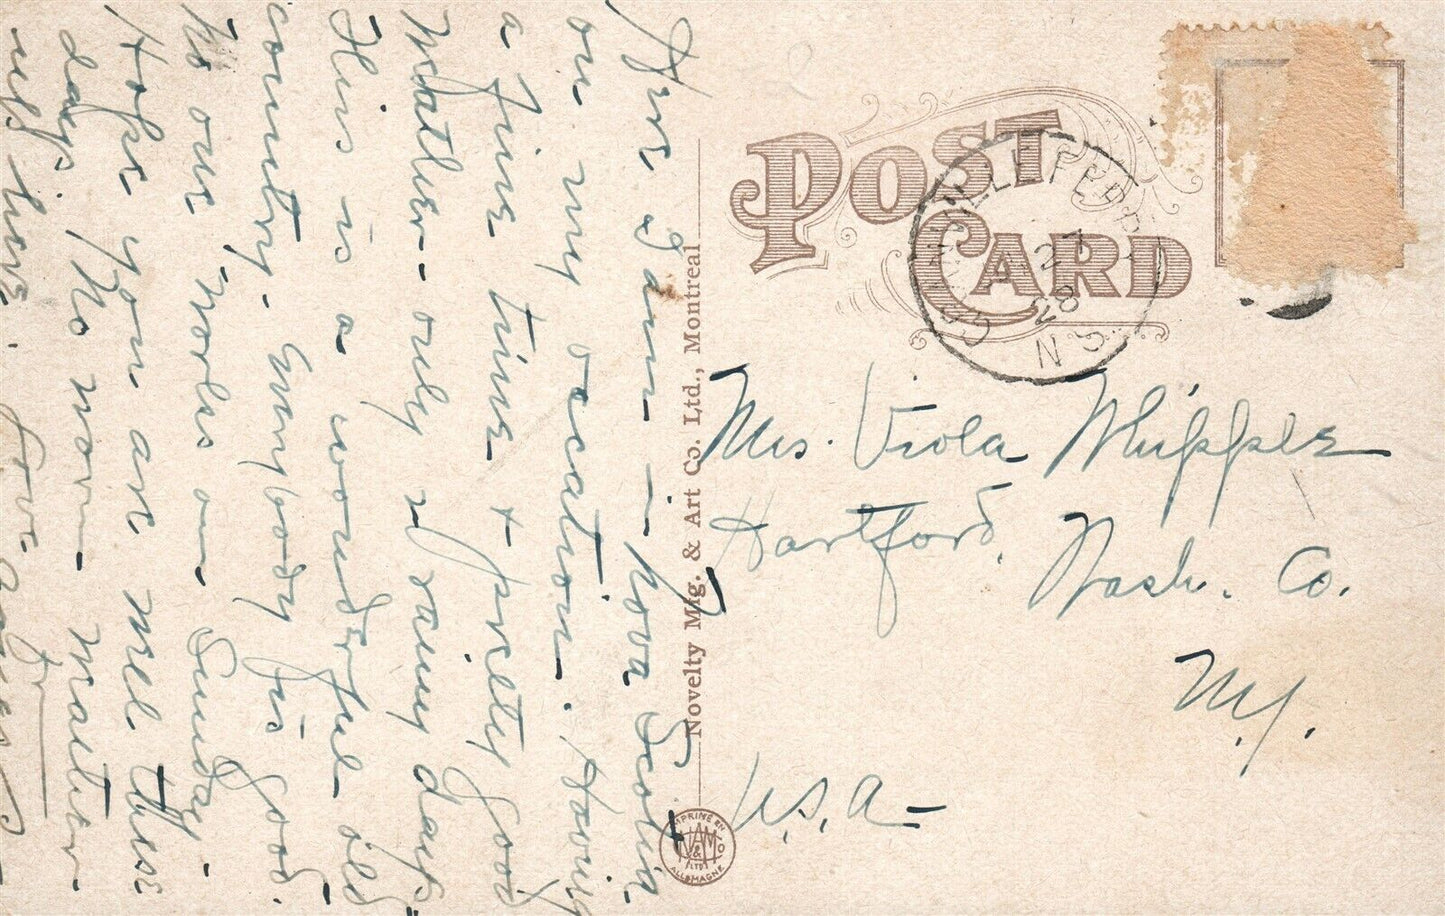 Here I am in Nova Scotia
on my vacation. Having
a fine time & pretty good
Weather - only 2 rainy days
This is a wonderful old
country. Everybody is good
to our Sunday.
Hope you are well these
days. No more matter
here. Love
POST
CARD
FEB
27
28
N S
Novelty Mfg. & Art Co. Ltd., Montreal
Mrs. Viola Whipple
Hartford, Wash. Co.
N.Y.
U.S.A.
IMPRIMÉ EN
ALLEMAGNE